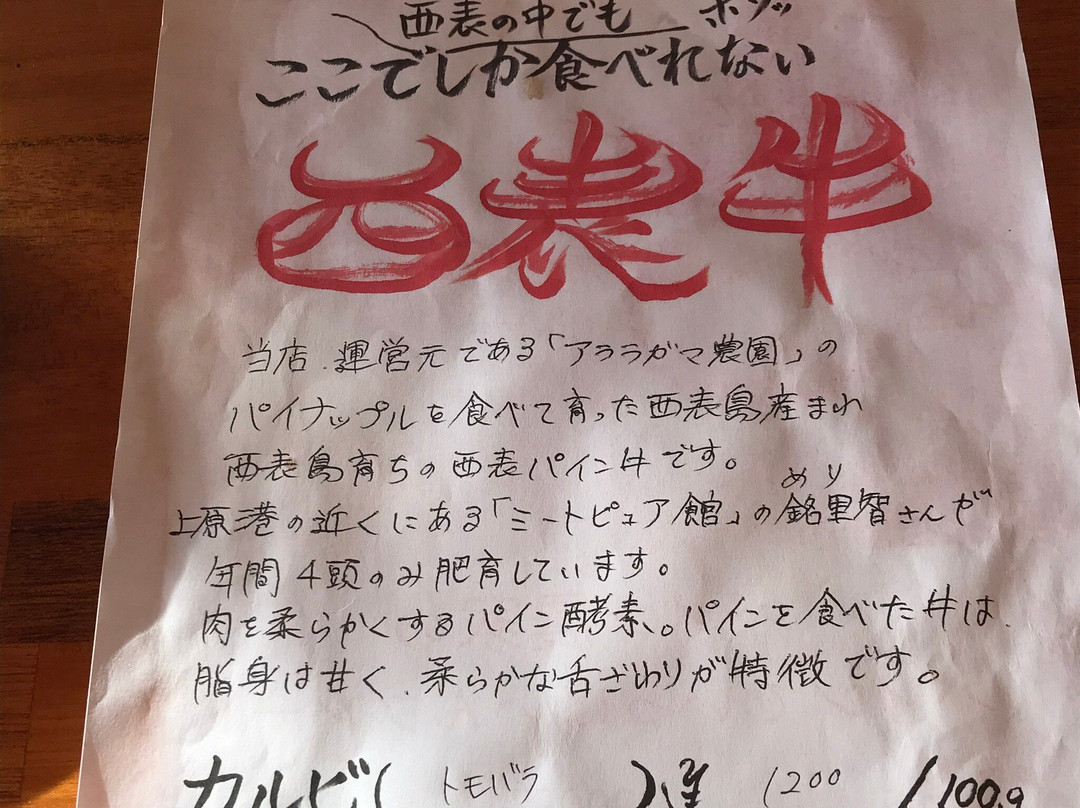 西表の中でも
ここでしか食べれない
西表牛
当店、運営元である「アララガマ農園」の
パイナップルを食べて育った西表島産まれ
西表島育ちの西表パイン牛です。
めり
上原港の近くにある「ミートピュア館」の銘里智さんが
年間4頭のみ肥育しています。
肉を柔らかくするパイン酵素。パインを食べた牛は、
脂身は甘く、柔らかな舌ざわりが特徴です。
カルビ(トモバラ) 1200/100g